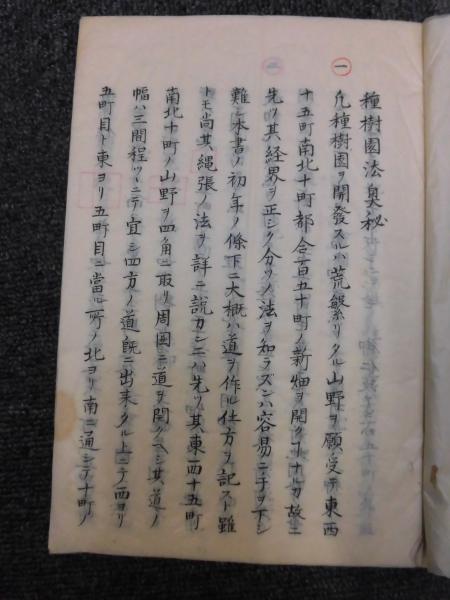 種樹園法奥秘
一
凡種樹園ヲ開發スルハ荒繁リタル山野ヲ願受テ東西
十五町南北十町都合百五十町ノ新畑ヲ開クヿナルカ故ニ
先ツ其経界ヲ正シク分ツノ法ヲ知ラズンハ容易ニ手ヲ下シ
難シ本書ノ初年ノ條下ニ大概ハ道ヲ作ル仕方ヲ記スト雖
トモ尚其縄張ノ法ヲ詳ニ説カンニハ先ツ其東西十五町
南北十町ノ山野ヲ四角ニ取リ周囲ニ道ヲ開クヘシ其道ノ
幅ハ三間程ツヽニテ宜シ四方ノ道既ニ出来タル上ニテ西ヨリ
五町目ト東ヨリ五町目ニ當ル所ノ北ヨリ南ニ通シテ十町ノ